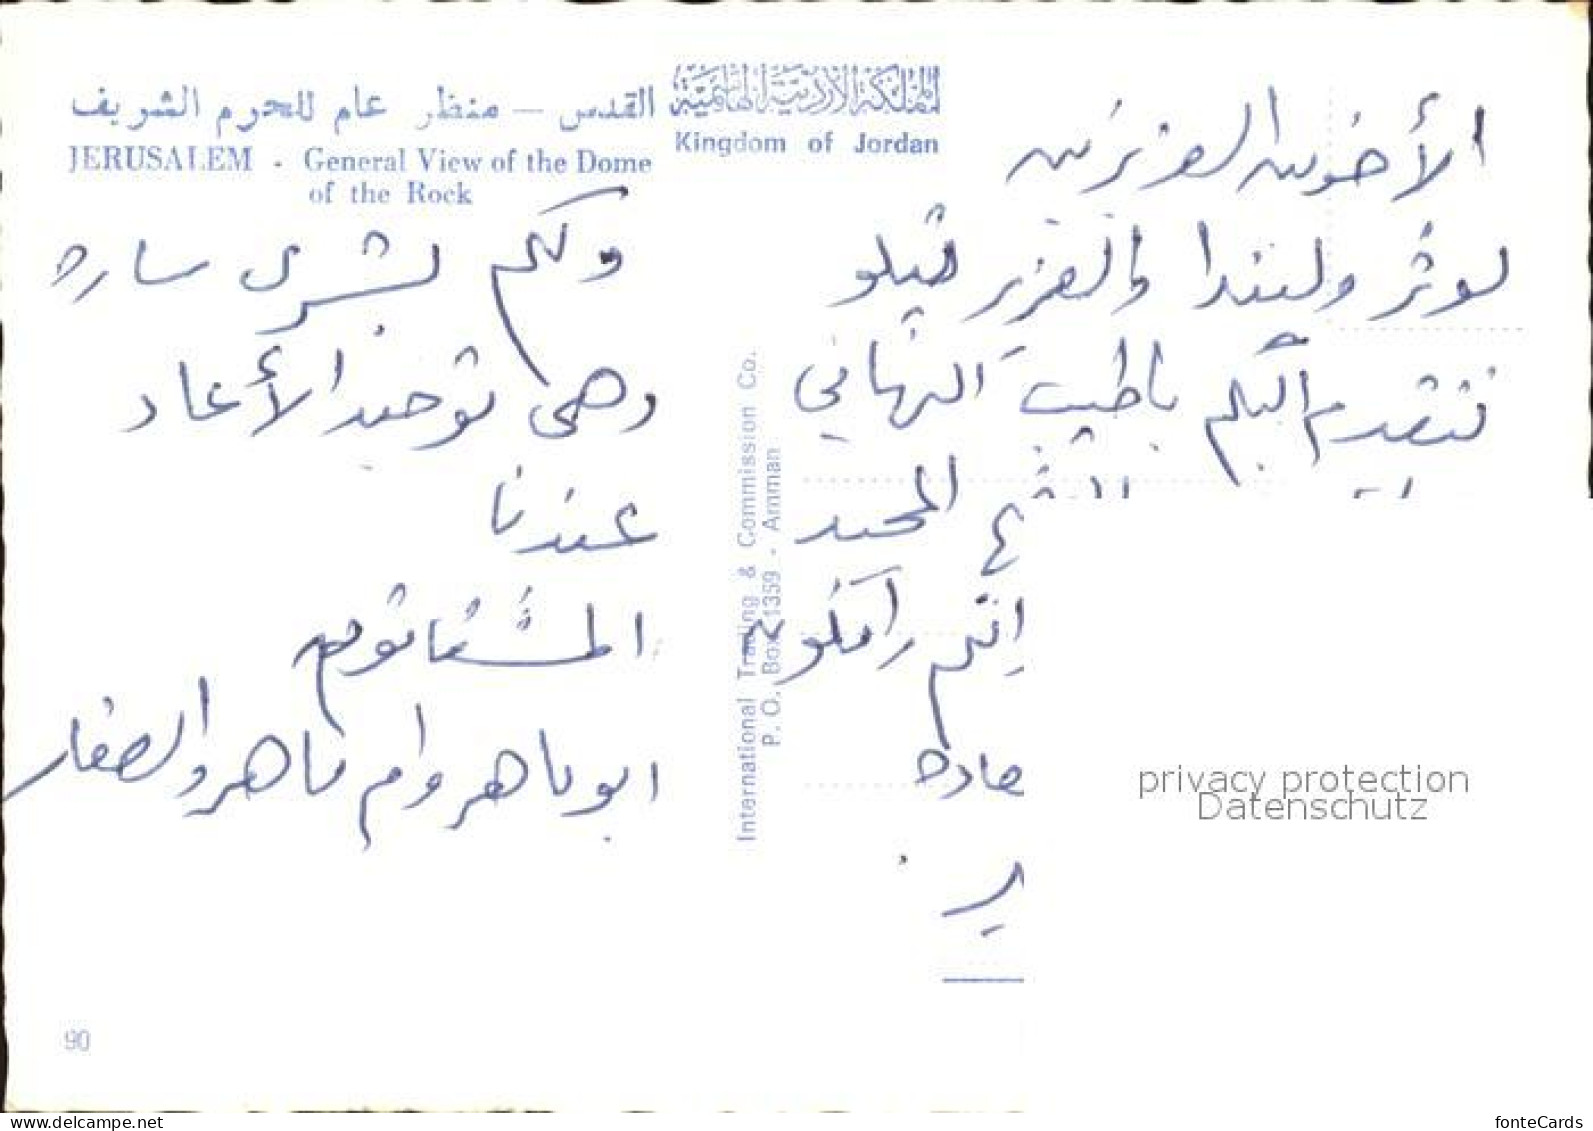 القدس — منظر عام للحرم الشريف
JERUSALEM - General View of the Dome
of the Rock
المملكة الأردنية الهاشمية
Kingdom of Jordan
الأخوين العزيزين
لوثر وليندا والعزيز
نتقدم اليكم باطيب التهاني
المجيد
انكم
ولكم بشرى ساره
وهي توحيد الأعياد
عندنا
المشتاقون
ابو ماهر وام ماهر والصغار
International Trading & Commission Co.
P. O. Box 1359 - Amman
90
privacy protection
Datenschutz
www.delcampe.net
fonteCards